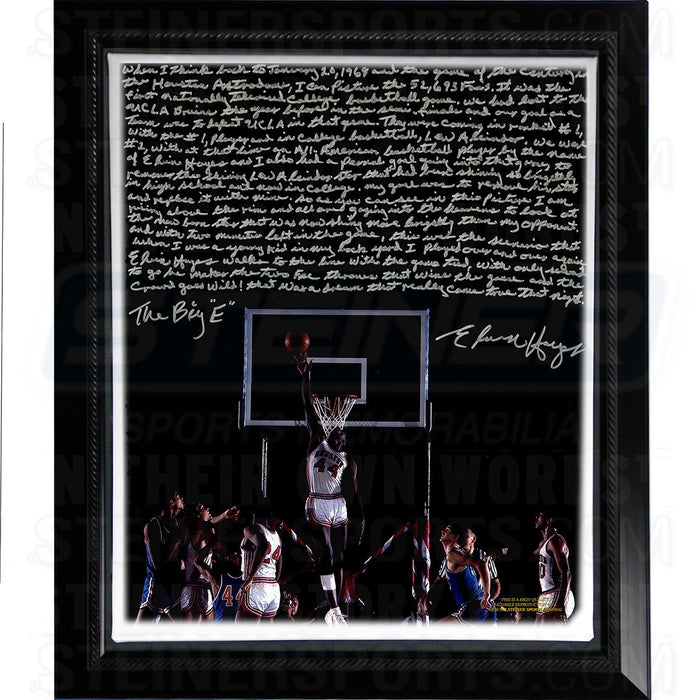 When I think back to January 20, 1968 and the game of the Century in
the Houston Astrodome, I can picture the 52,693 Fans. It was the
first Nationally Televised College basketball game. we had lost to the
UCLA Bruins the year before in the semi-finals and our goal as a
team was to defeat UCLA in that game. They were coming in ranked # 1,
with the # 1, Player in College basketball, Lew Alcindor. we were
#2, with at that time an All-American basketball player by the name
of Elvin Hayes and I also had a personal goal going into that game to
remove the shining Lew Alcindor star that had been shining so brightly
in high school and now in College. my goal was to remove his star
and replace it with mine. so as you can see in this Picture I am
rising above the rim and all are gazing into the heavens to look at
the new born star that was now shining more brightly than my opponent.
and with two minutes left in the game, this was the scenario that
when I was a young kid in my back yard I played over and over again
Elvin Hayes walks to the line with the game tied, with only seconds
to go he makes the two free throws that wins the game and the
Crowd goes wild! that was a dream that really came true that night.
The Big "E"
Elvin Hayes
STEINER
SPORTS MEMORABILIA
IN THEIR OWN WORDS
STEINERSPORTS.COM
44
44
THIS IS A HIGH-QUALITY
FACSIMILE REPRODUCTION
STEINER SPORTS MEMORABILIA